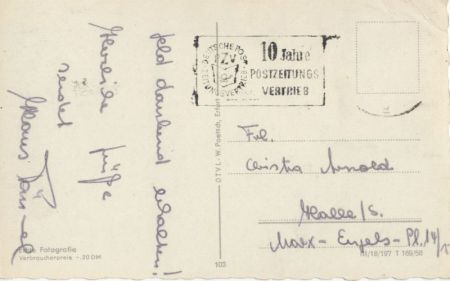 Geld dankend erhalten!
Herzliche Grüße
sendet
Klaus
10 Jahre
POSTZEITUNGS
VERTRIEB
DEUTSCHE POST
ZV
Frl.
Christa Arnold
Halle/S.
Marx-Engels-Pl.
DTV L.-W. Poetsch, Erfurt
Echte Fotografie
Verbraucherpreis -.20 DM
103
III/18/197 T 169/58